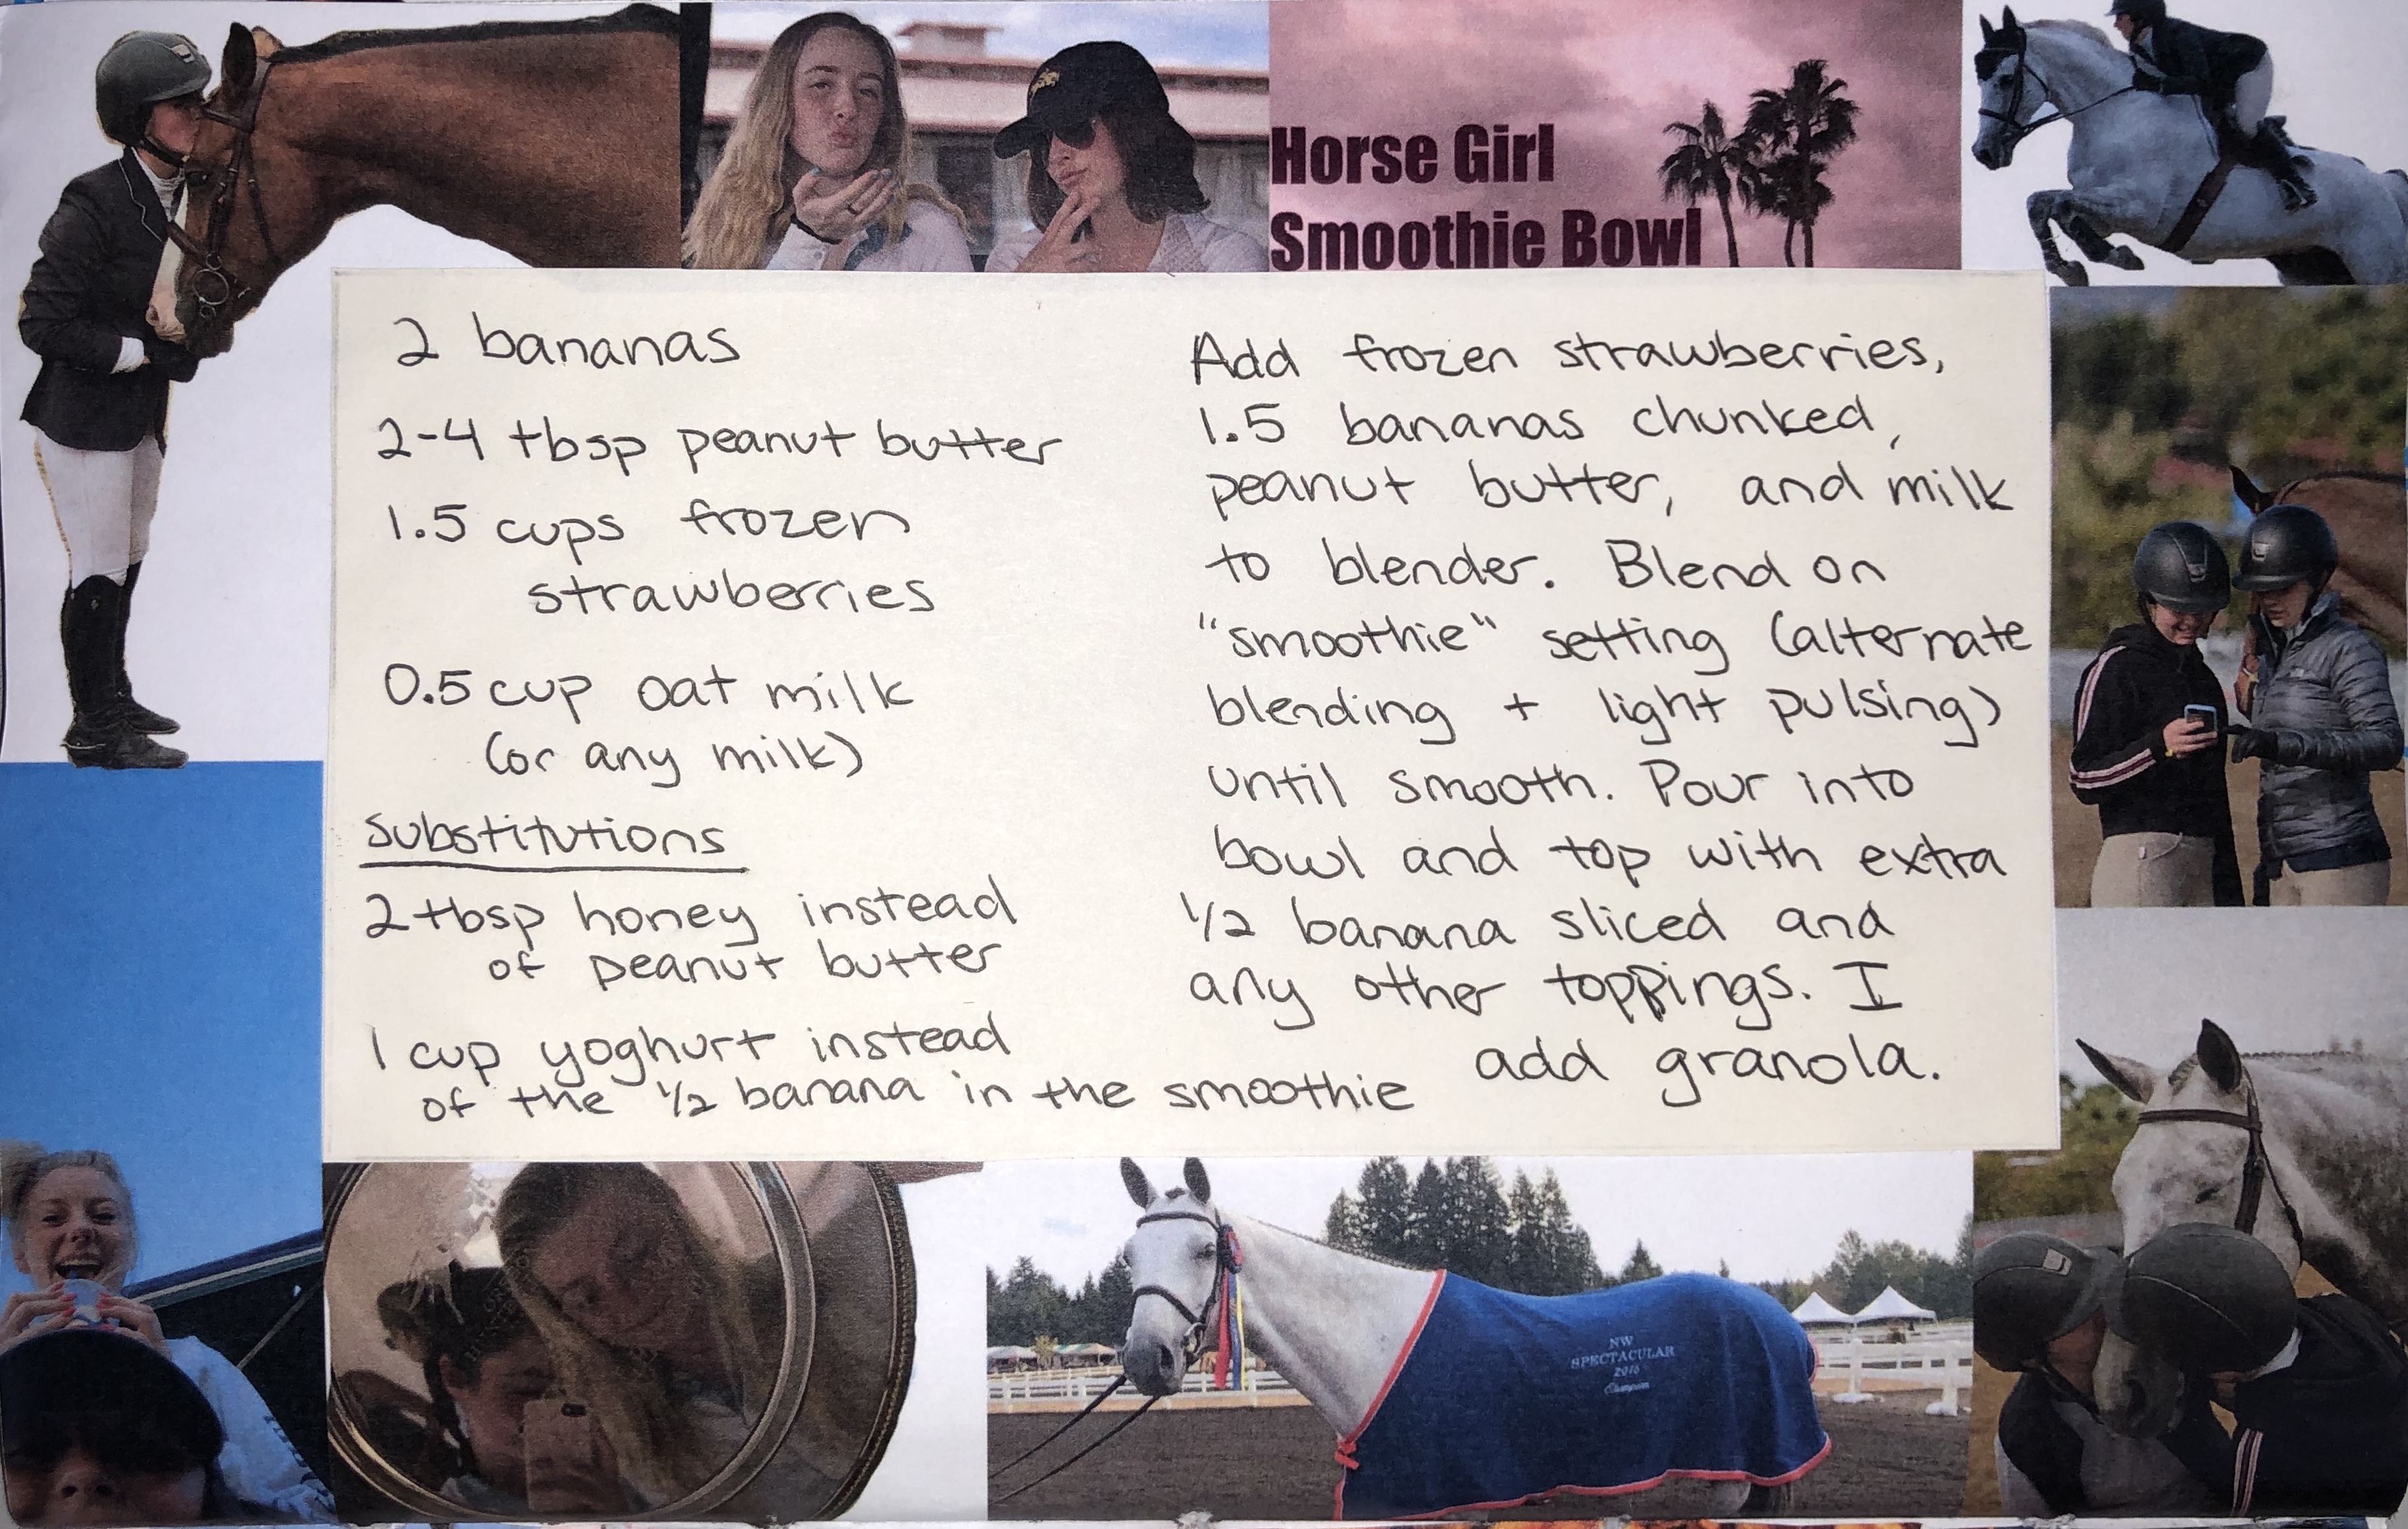 Horse Girl
Smoothie Bowl
2 bananas
2-4 tbsp peanut butter
1.5 cups frozen
strawberries
0.5 cup oat milk
(or any milk)
substitutions
2 tbsp honey instead
of peanut butter
1 cup yoghurt instead
of the 1/2 banana in the smoothie
Add frozen strawberries,
1.5 bananas chunked,
peanut butter, and milk
to blender. Blend on
"smoothie" setting (alternate
blending + light pulsing)
until smooth. Pour into
bowl and top with extra
1/2 banana sliced and
any other toppings. I
add granola.
NW
SPECTACULAR
Champion